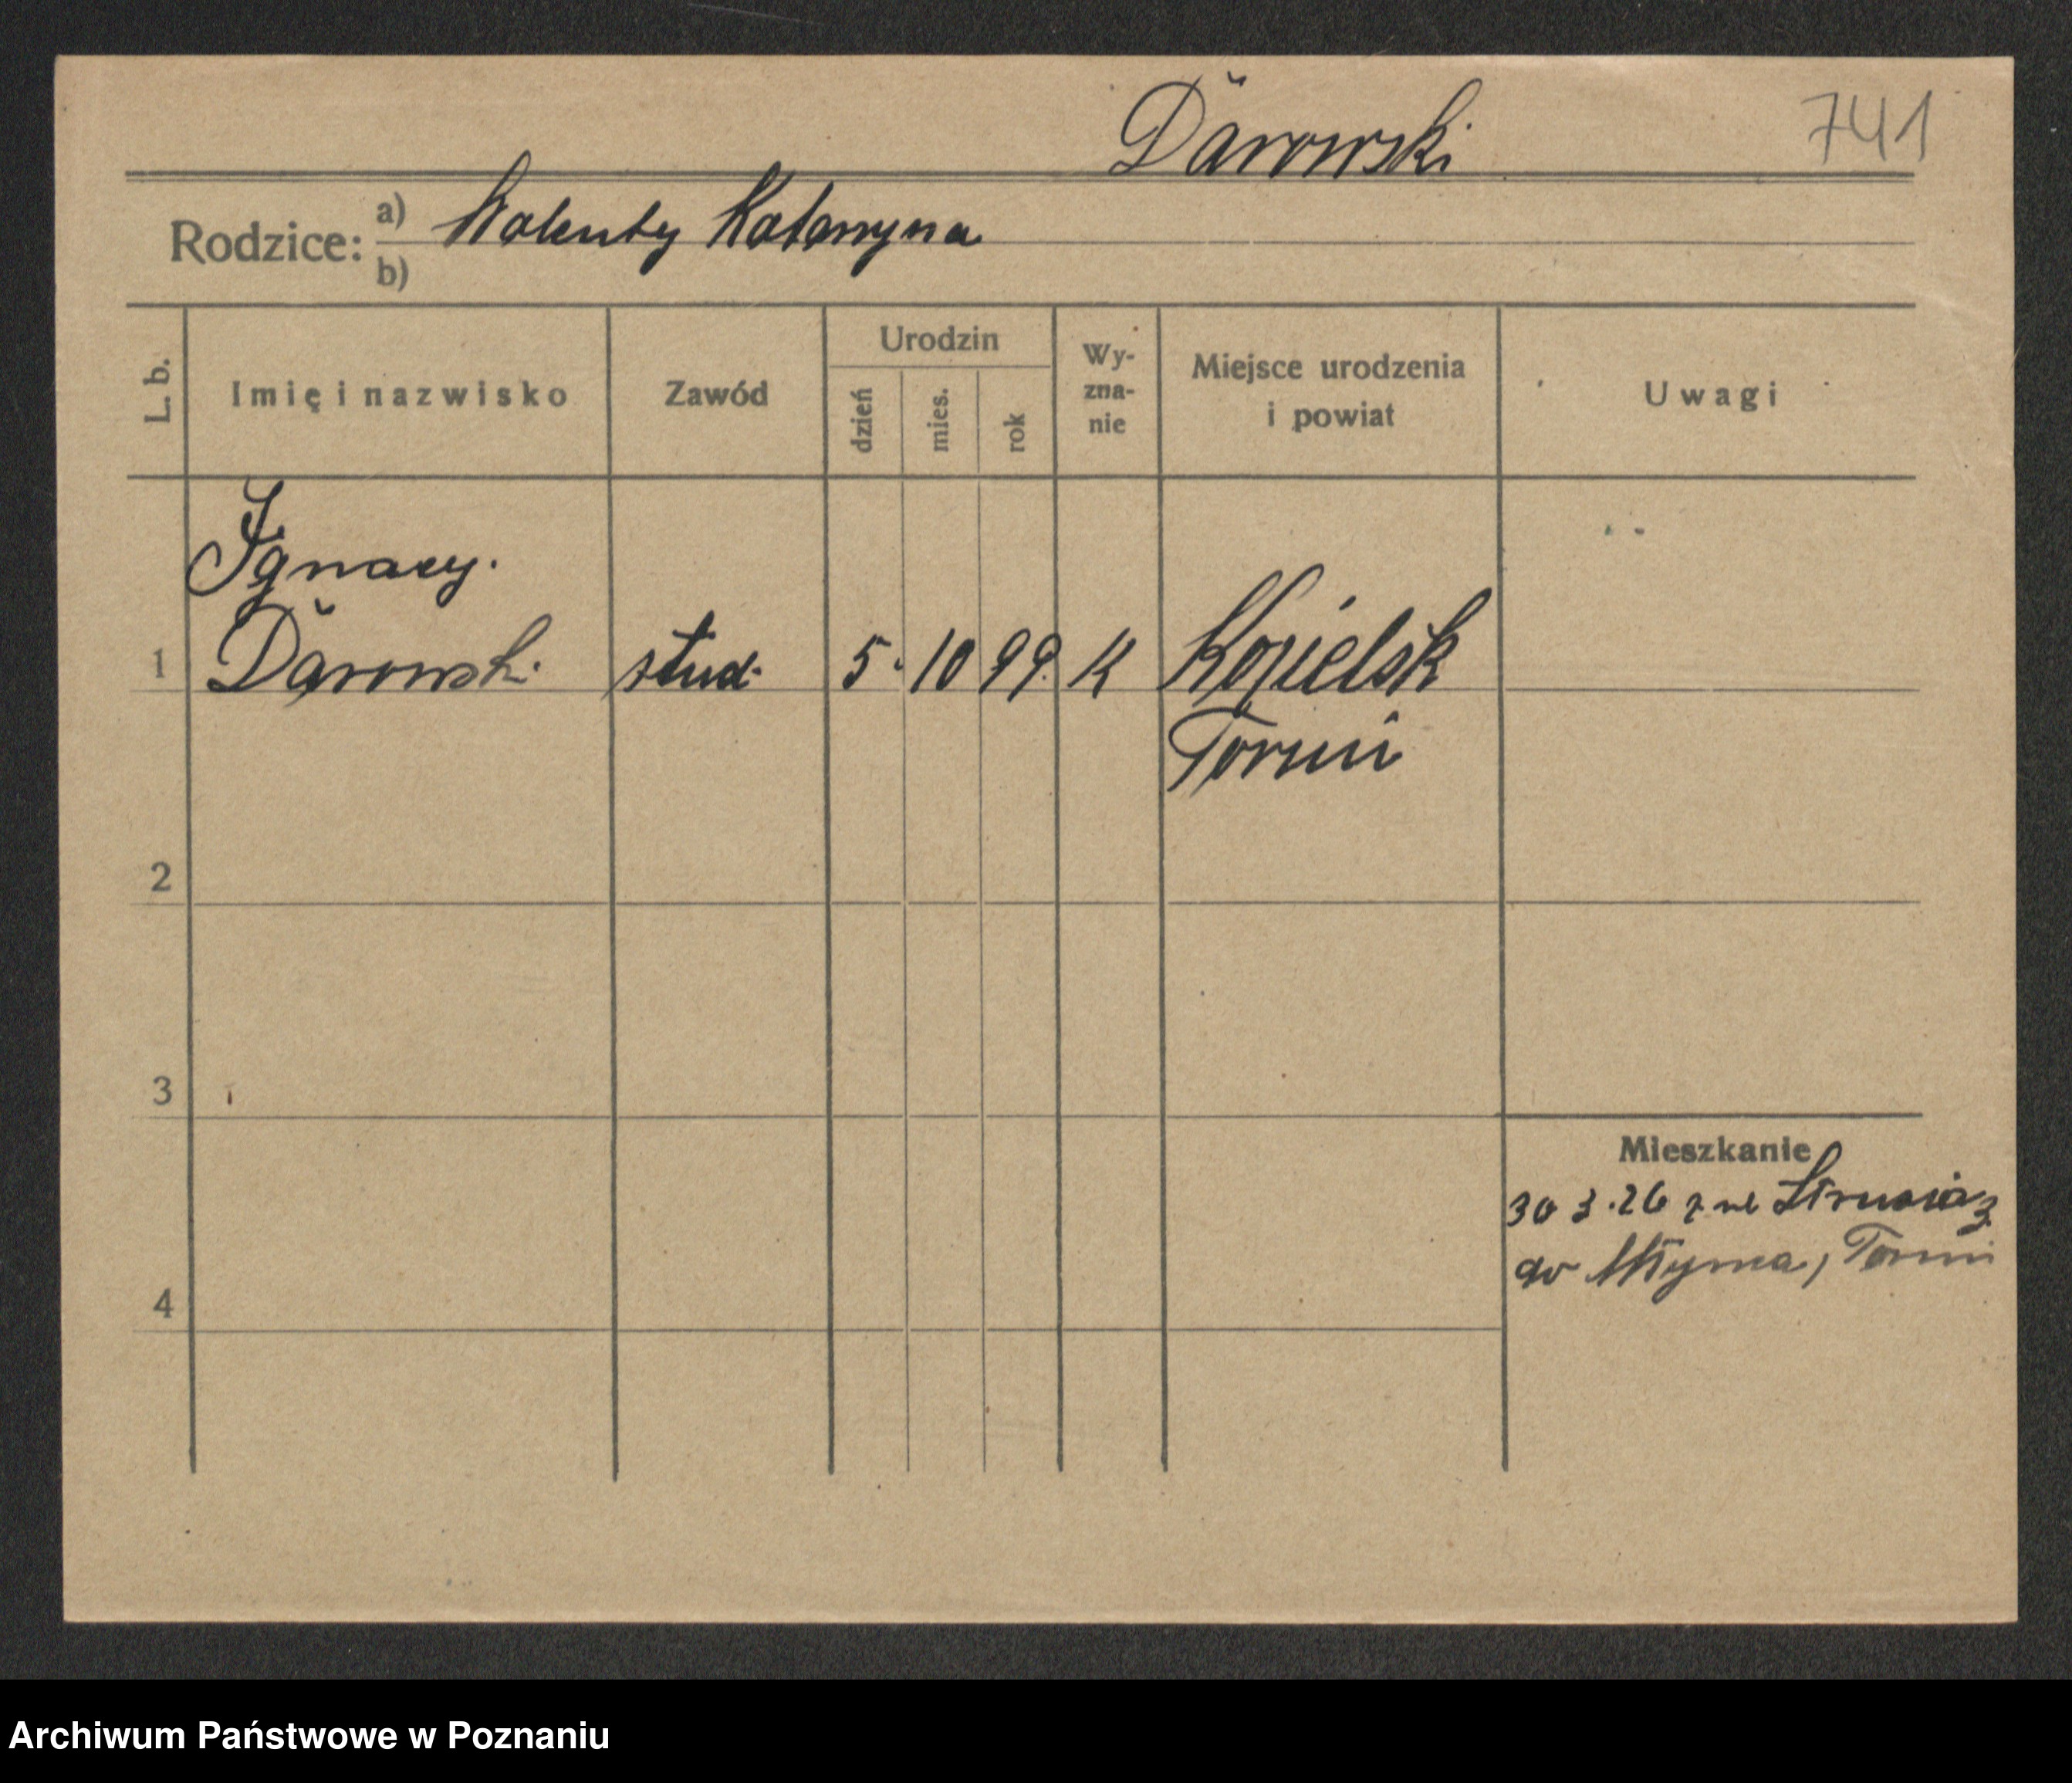 Dărowski
741
Rodzice: a) Walenty Katarzyna
b)
L. b.
Imię i nazwisko
Zawód
Urodzin
dzień
mies.
rok
Wy-
zna-
nie
Miejsce urodzenia
i powiat
Uwagi
Ignacy.
1 Dărowski stud. 5. 10 99. K
Toruń
2
3
Mieszkanie
30 3. 26 z ul Strusia 3
do Młyńca, Toruń
4
Archiwum Państwowe w Poznaniu